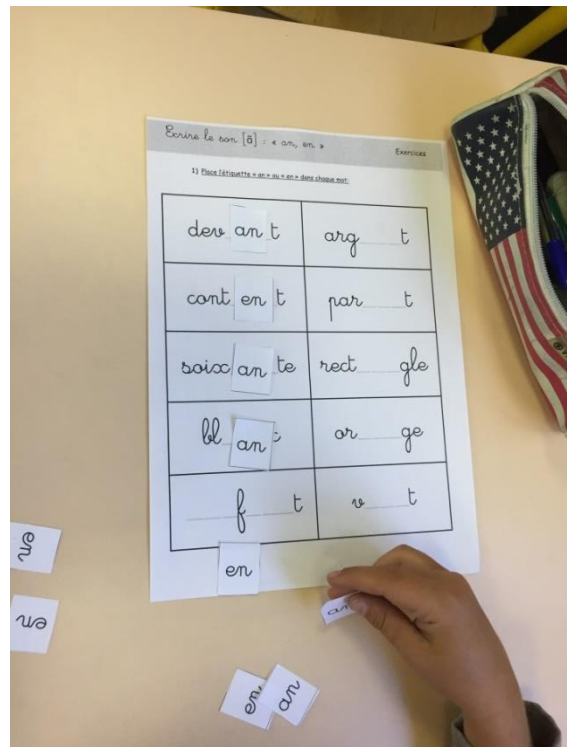 Ecrire le son [ã] : « an, en »
Exercices
1) Place l'étiquette « an » ou « en » dans chaque mot:
dev an t
arg t
cont en t
par t
soix an te
rect gle
bl an
or ge
f t
v t
en
en
an
en
en
an